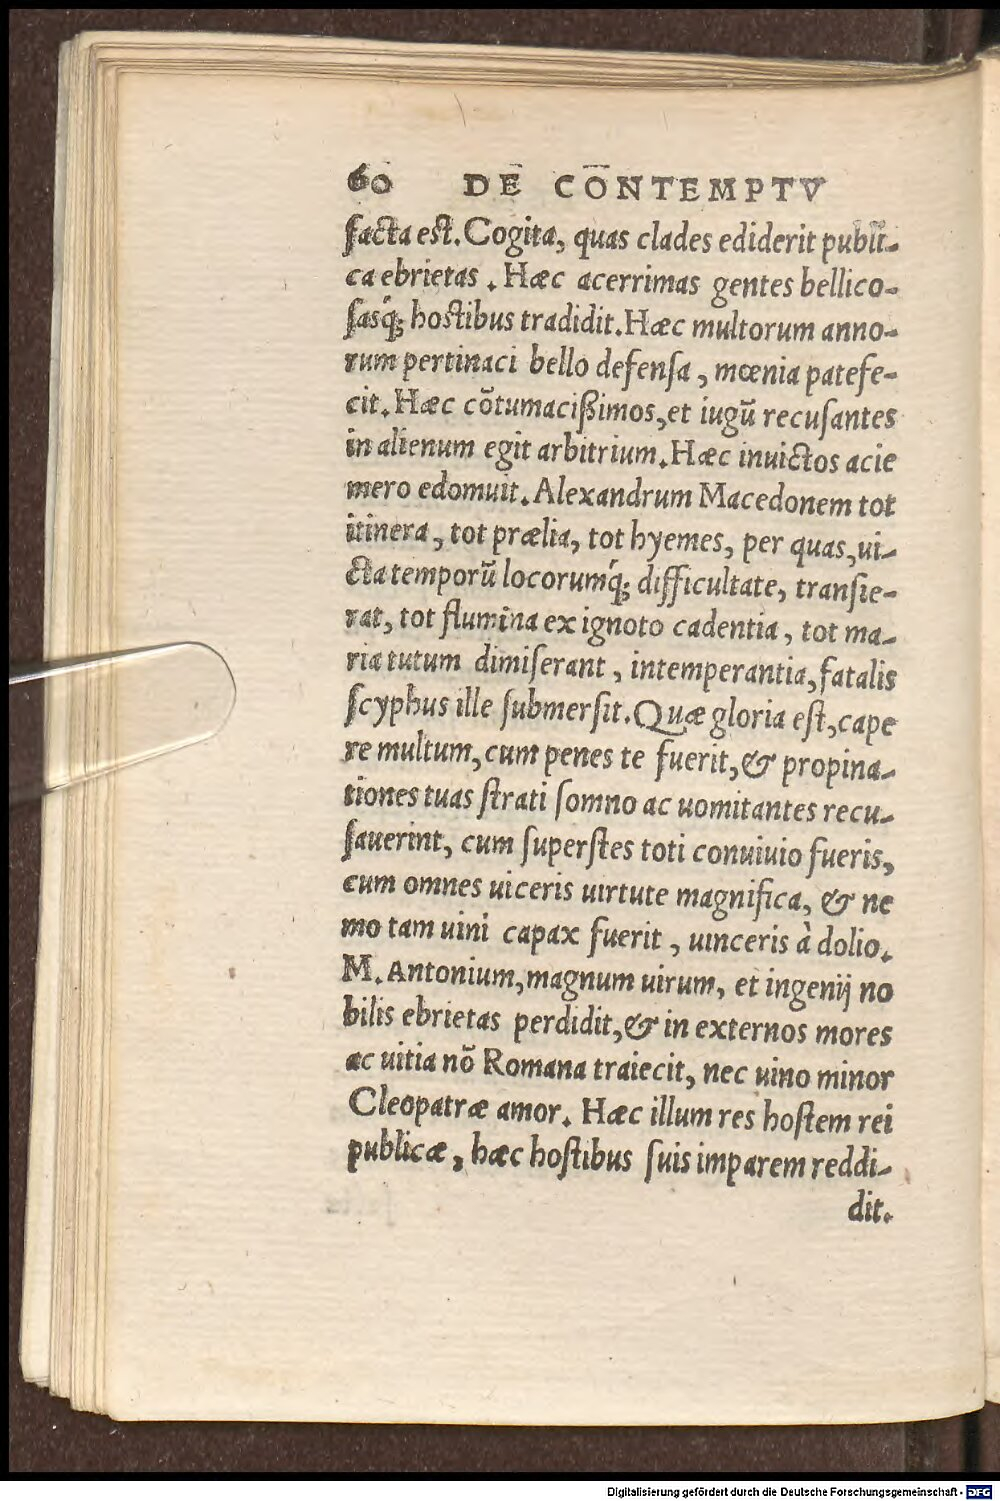 60 DE CONTEMPTV
facta est. Cogita, quas clades ediderit publi-
ca ebrietas. Hæc acerrimas gentes bellico-
sasq́; hostibus tradidit. Hæc multorum anno-
rum pertinaci bello defensa, mœnia patefe-
cit. Hæc cõtumacißimos, et iugũ recusantes
in alienum egit arbitrium. Hæc inuictos acie
mero edomuit. Alexandrum Macedonem tot
itinera, tot prælia, tot hyemes, per quas, ui-
cta temporũ locorumq́; difficultate, transie-
rat, tot flumina ex ignoto cadentia, tot ma-
ria tutum dimiserant, intemperantia, fatalis
scyphus ille submersit. Quæ gloria est, cape
re multum, cum penes te fuerit, & propina-
tiones tuas strati somno ac uomitantes recu-
sauerint, cum superstes toti conuiuio fueris,
cum omnes uiceris uirtute magnifica, & ne
mo tam uini capax fuerit, uinceris à dolio.
M. Antonium, magnum uirum, et ingenij no
bilis ebrietas perdidit, & in externos mores
ac uitia nõ Romana traiecit, nec uino minor
Cleopatræ amor. Hæc illum res hostem rei
publicæ, hæc hostibus suis imparem reddi-
dit.
Digitalisierung gefördert durch die Deutsche Forschungsgemeinschaft - DFG